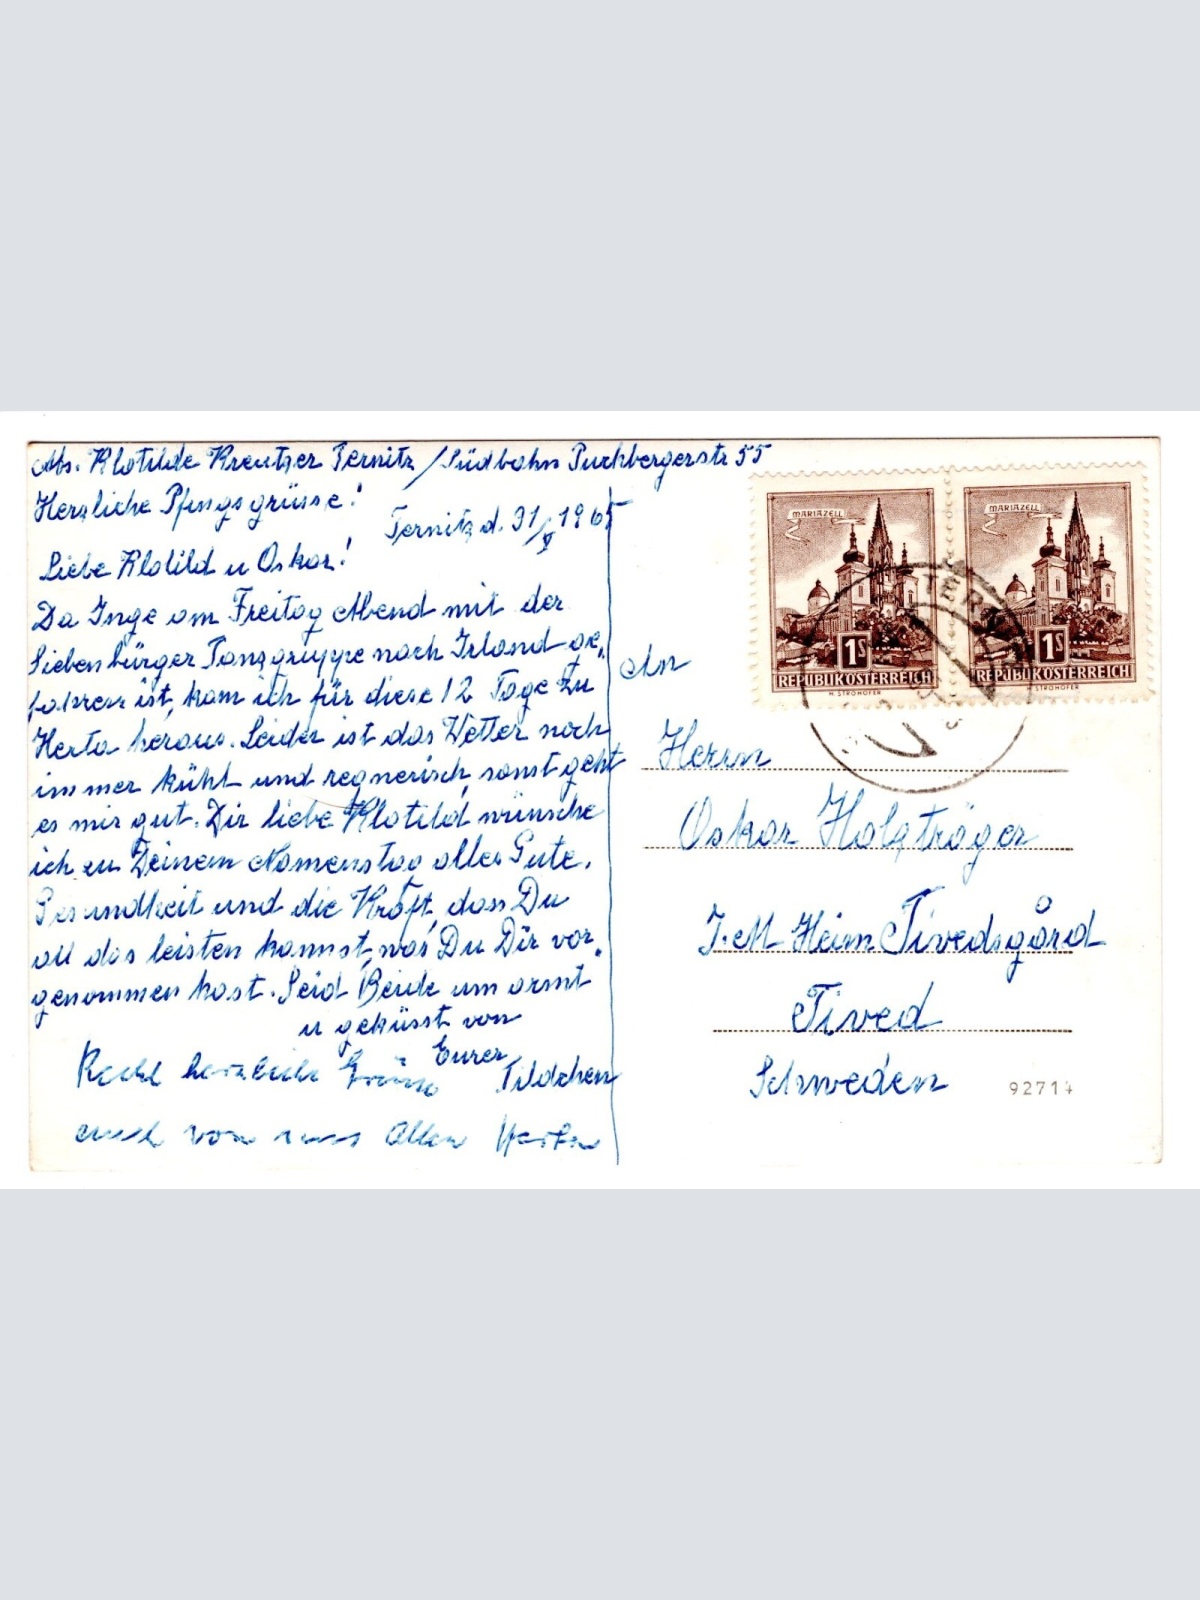 Abs. Klotilde Kreutzer Ternitz/Südbahn Puchbergerstr 55
Herzliche Pfingsgrüsse!
Ternitz d. 31/V 1965
Liebe Klotild u Oskar!
Da Inge am Freitag Abend mit der
Siebenbürger Tanzgruppe nach Irland ge„
fahren ist, kam ich für diese 12 Tage zu
Herta heraus. Leider ist das Wetter noch
immer kühl und regnerisch, sonst geht
es mir gut. Dir liebe Klotild wünsche
ich zu Deinem Namenstag alles Gute.
Gesundheit und die Kraft, dass Du
all das leisten kannst, was Du Dir vor„
genommen hast. Seid Beide umarmt
u geküsst von
Eurer
Tildchen
Recht herzliche Grüsse
auch von uns Allen Herta
MARIAZELL
1S
REPUBLIK ÖSTERREICH
H. STROHOFER
MARIAZELL
1S
REPUBLIK ÖSTERREICH
STROHOFER
TER
An
Herrn
Oskar Holzträger
I.M Heim Tivedsgård
Tived
Schweden
92714